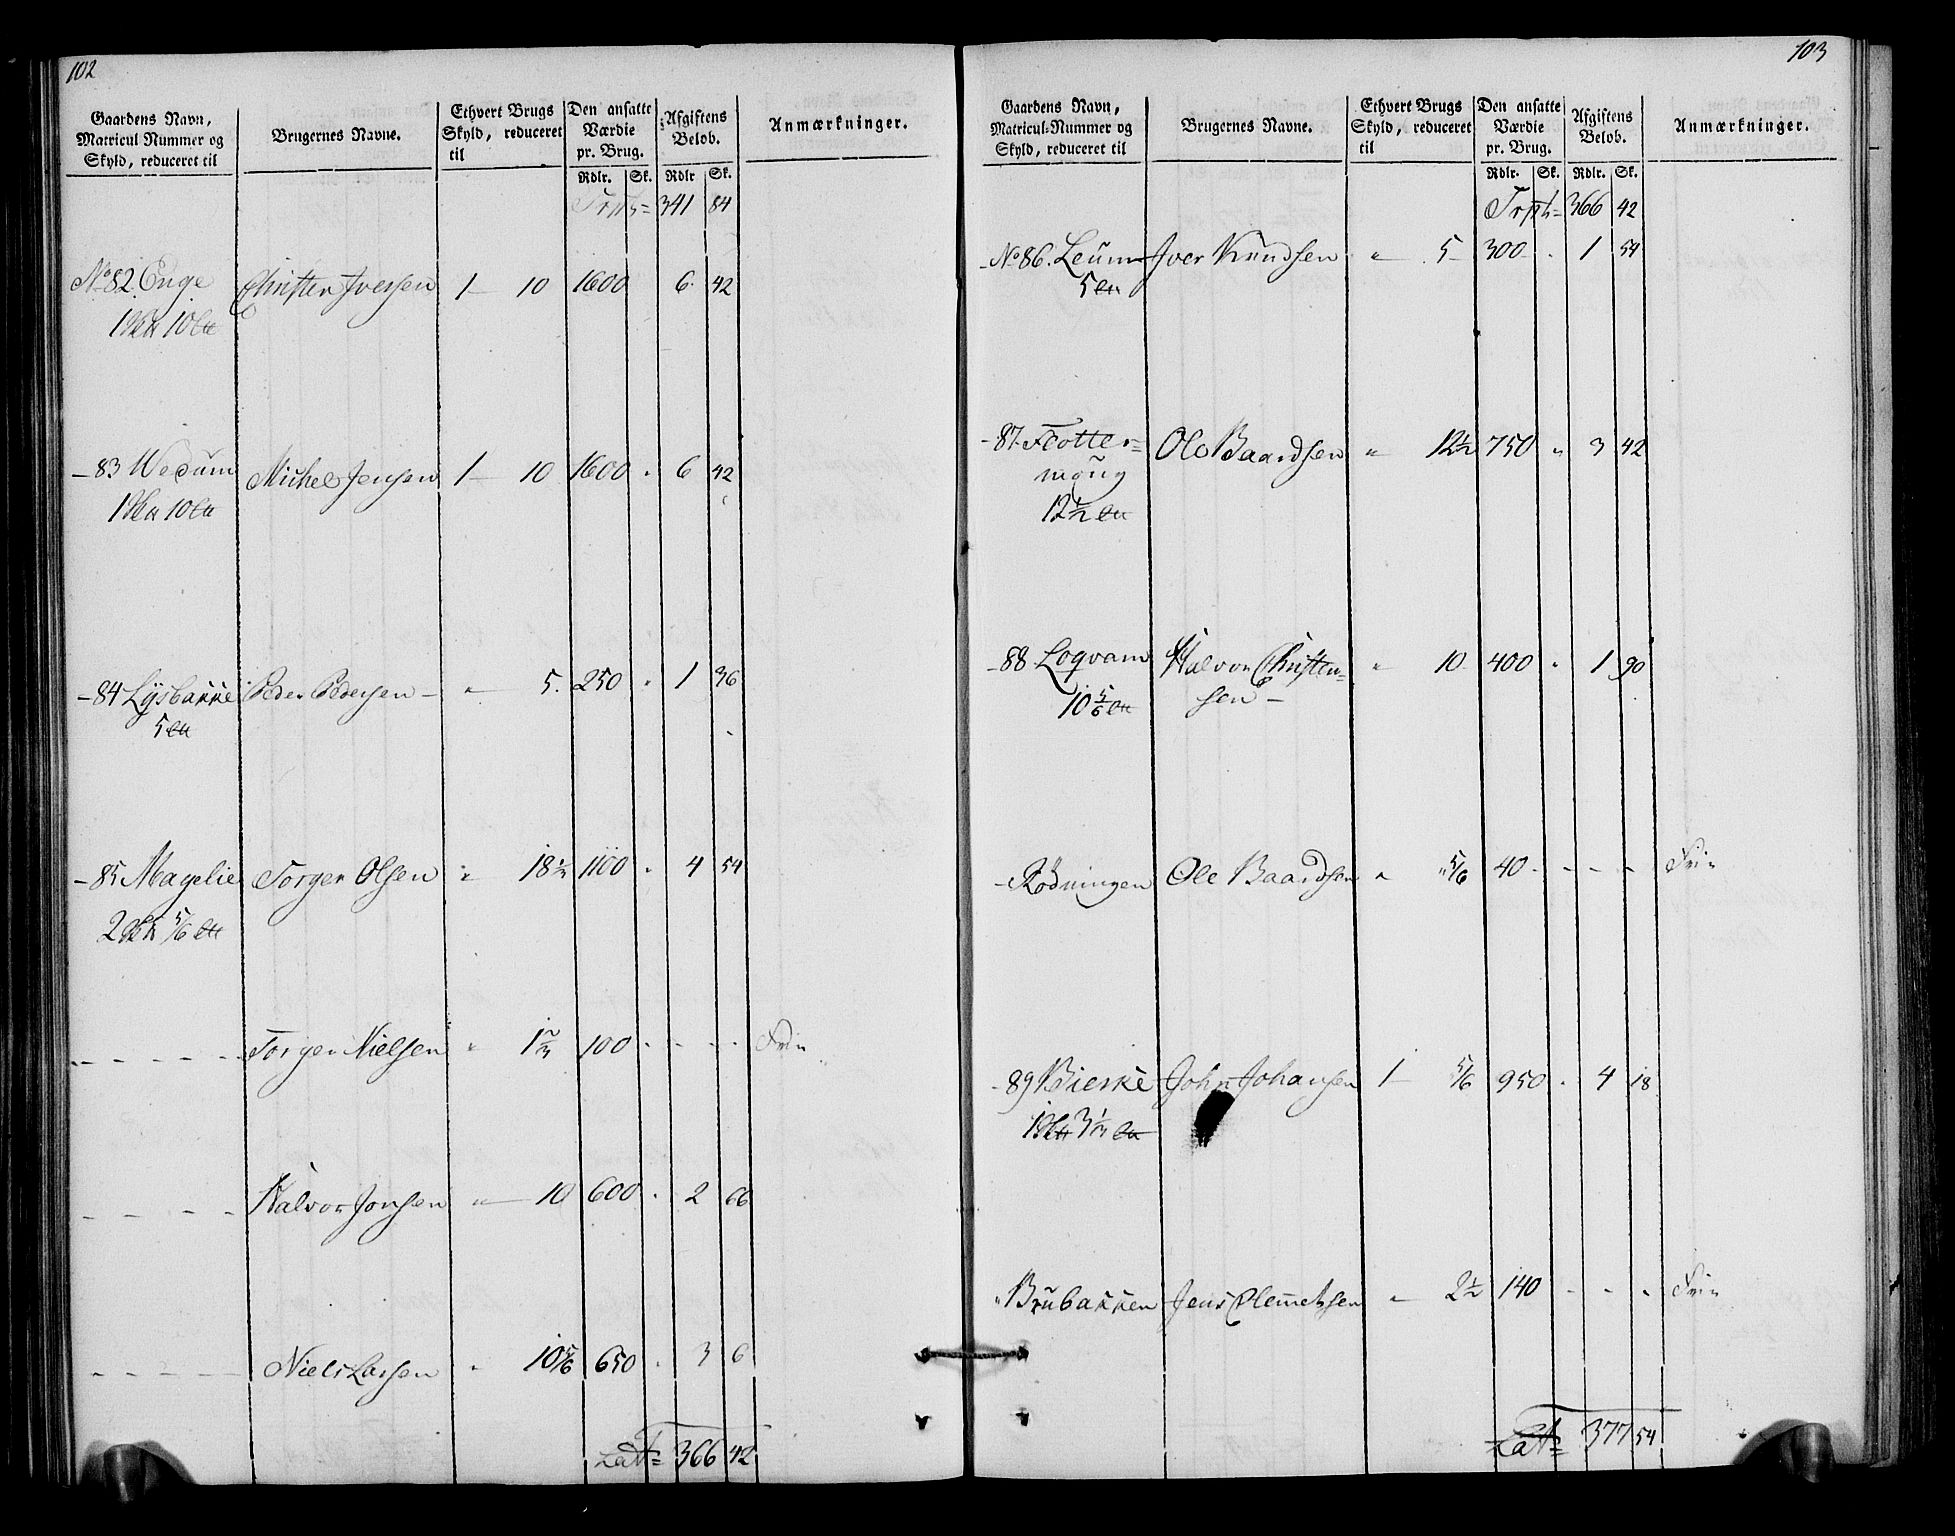 102
Gaardens Navn,
Matricul Nummer og
Skyld, reduceret til
Brugernes Navne.
Ethvert Brugs
Skyld, reduceret
til
Den ansatte
Værdie
pr. Brug.
Afgiftens
Beløb.
Anmærkninger.
Rdlr. Sk. Rdlr Sk.
Trsp:= 341 84
No 82. Enge Christen Iversen 1 10 1600 6. 42
10
- 83 Wedum Michel Jensen 1 10 1600 " 6 42
10
- 84 Lysbakke Peder Pedersen - " 5. 250 " 1 36
5
- 85 Magelie Torger Olsen " 18 1/3 1100 " 4 54
2 5/6
- - - - - Torger Nielsen " 1 2/3 100 - - - - Frie
- - - - Halvor Jonsen " 10 600 " 2 66
- - - - - Niels Larsen " 10 5/6 650 " 3 6
Lat= 366 42
103
Gaardens Navn,
Matricul-Nummer og
Skyld, reduceret til
Brugernes Navne.
Ethvert Brugs
Skyld, reduceret
til
Den ansatte
Værdie
pr. Brug.
Afgiftens
Beløb.
Anmærkninger.
Rdlr. Sk. Rdlr. Sk.
Trsp:= 366 42
- No 86. Leum Iver Knudsen " 5 300 - " 1 54
5
- 87. Flotter= Ole Baardsen " 12 1/2 750 " 3 42
moug
12 1/2
- 88 Loqvam Halvor Christen= " 10 400 " 1 90
10 5/6 sen -
- Rødningen Ole Baardsen " " 5/6 40 - - - - Frie
- 89 Bierke John Johansen 1 5/6 950 " 4 18
1 3 1/3
" Brubakken Jens Clemetsen " 2 1/2 140 - - " Frie
Lat= 377 54